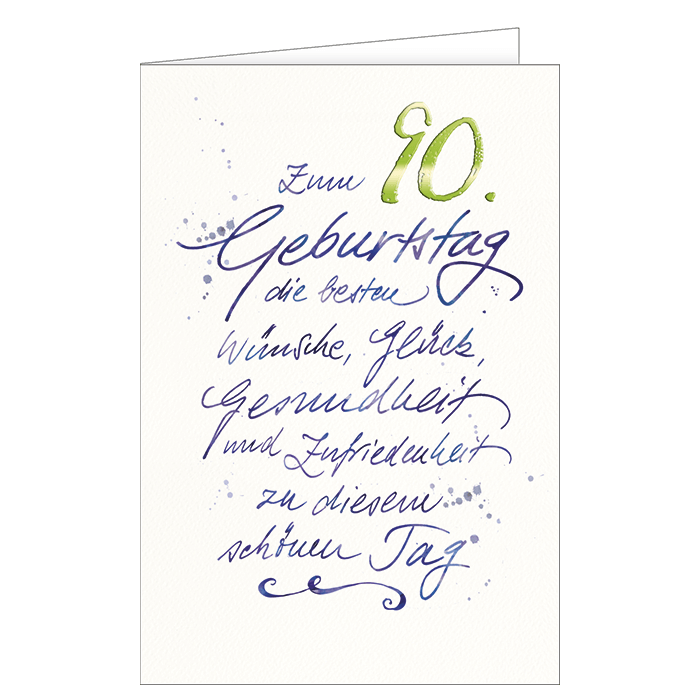 Zum 90.
Geburtstag
die besten
Wünsche, Glück,
Gesundheit
und Zufriedenheit
zu diesem
schönen Tag